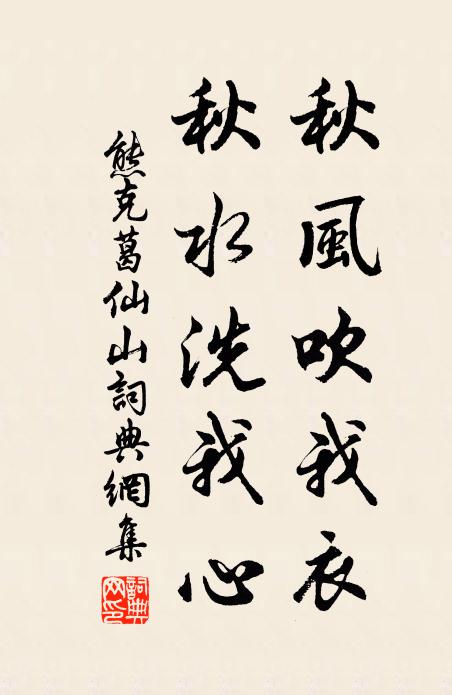 秋風吹我衣
秋水洗我心
熊克葛仙山詞典網集
詞典网印